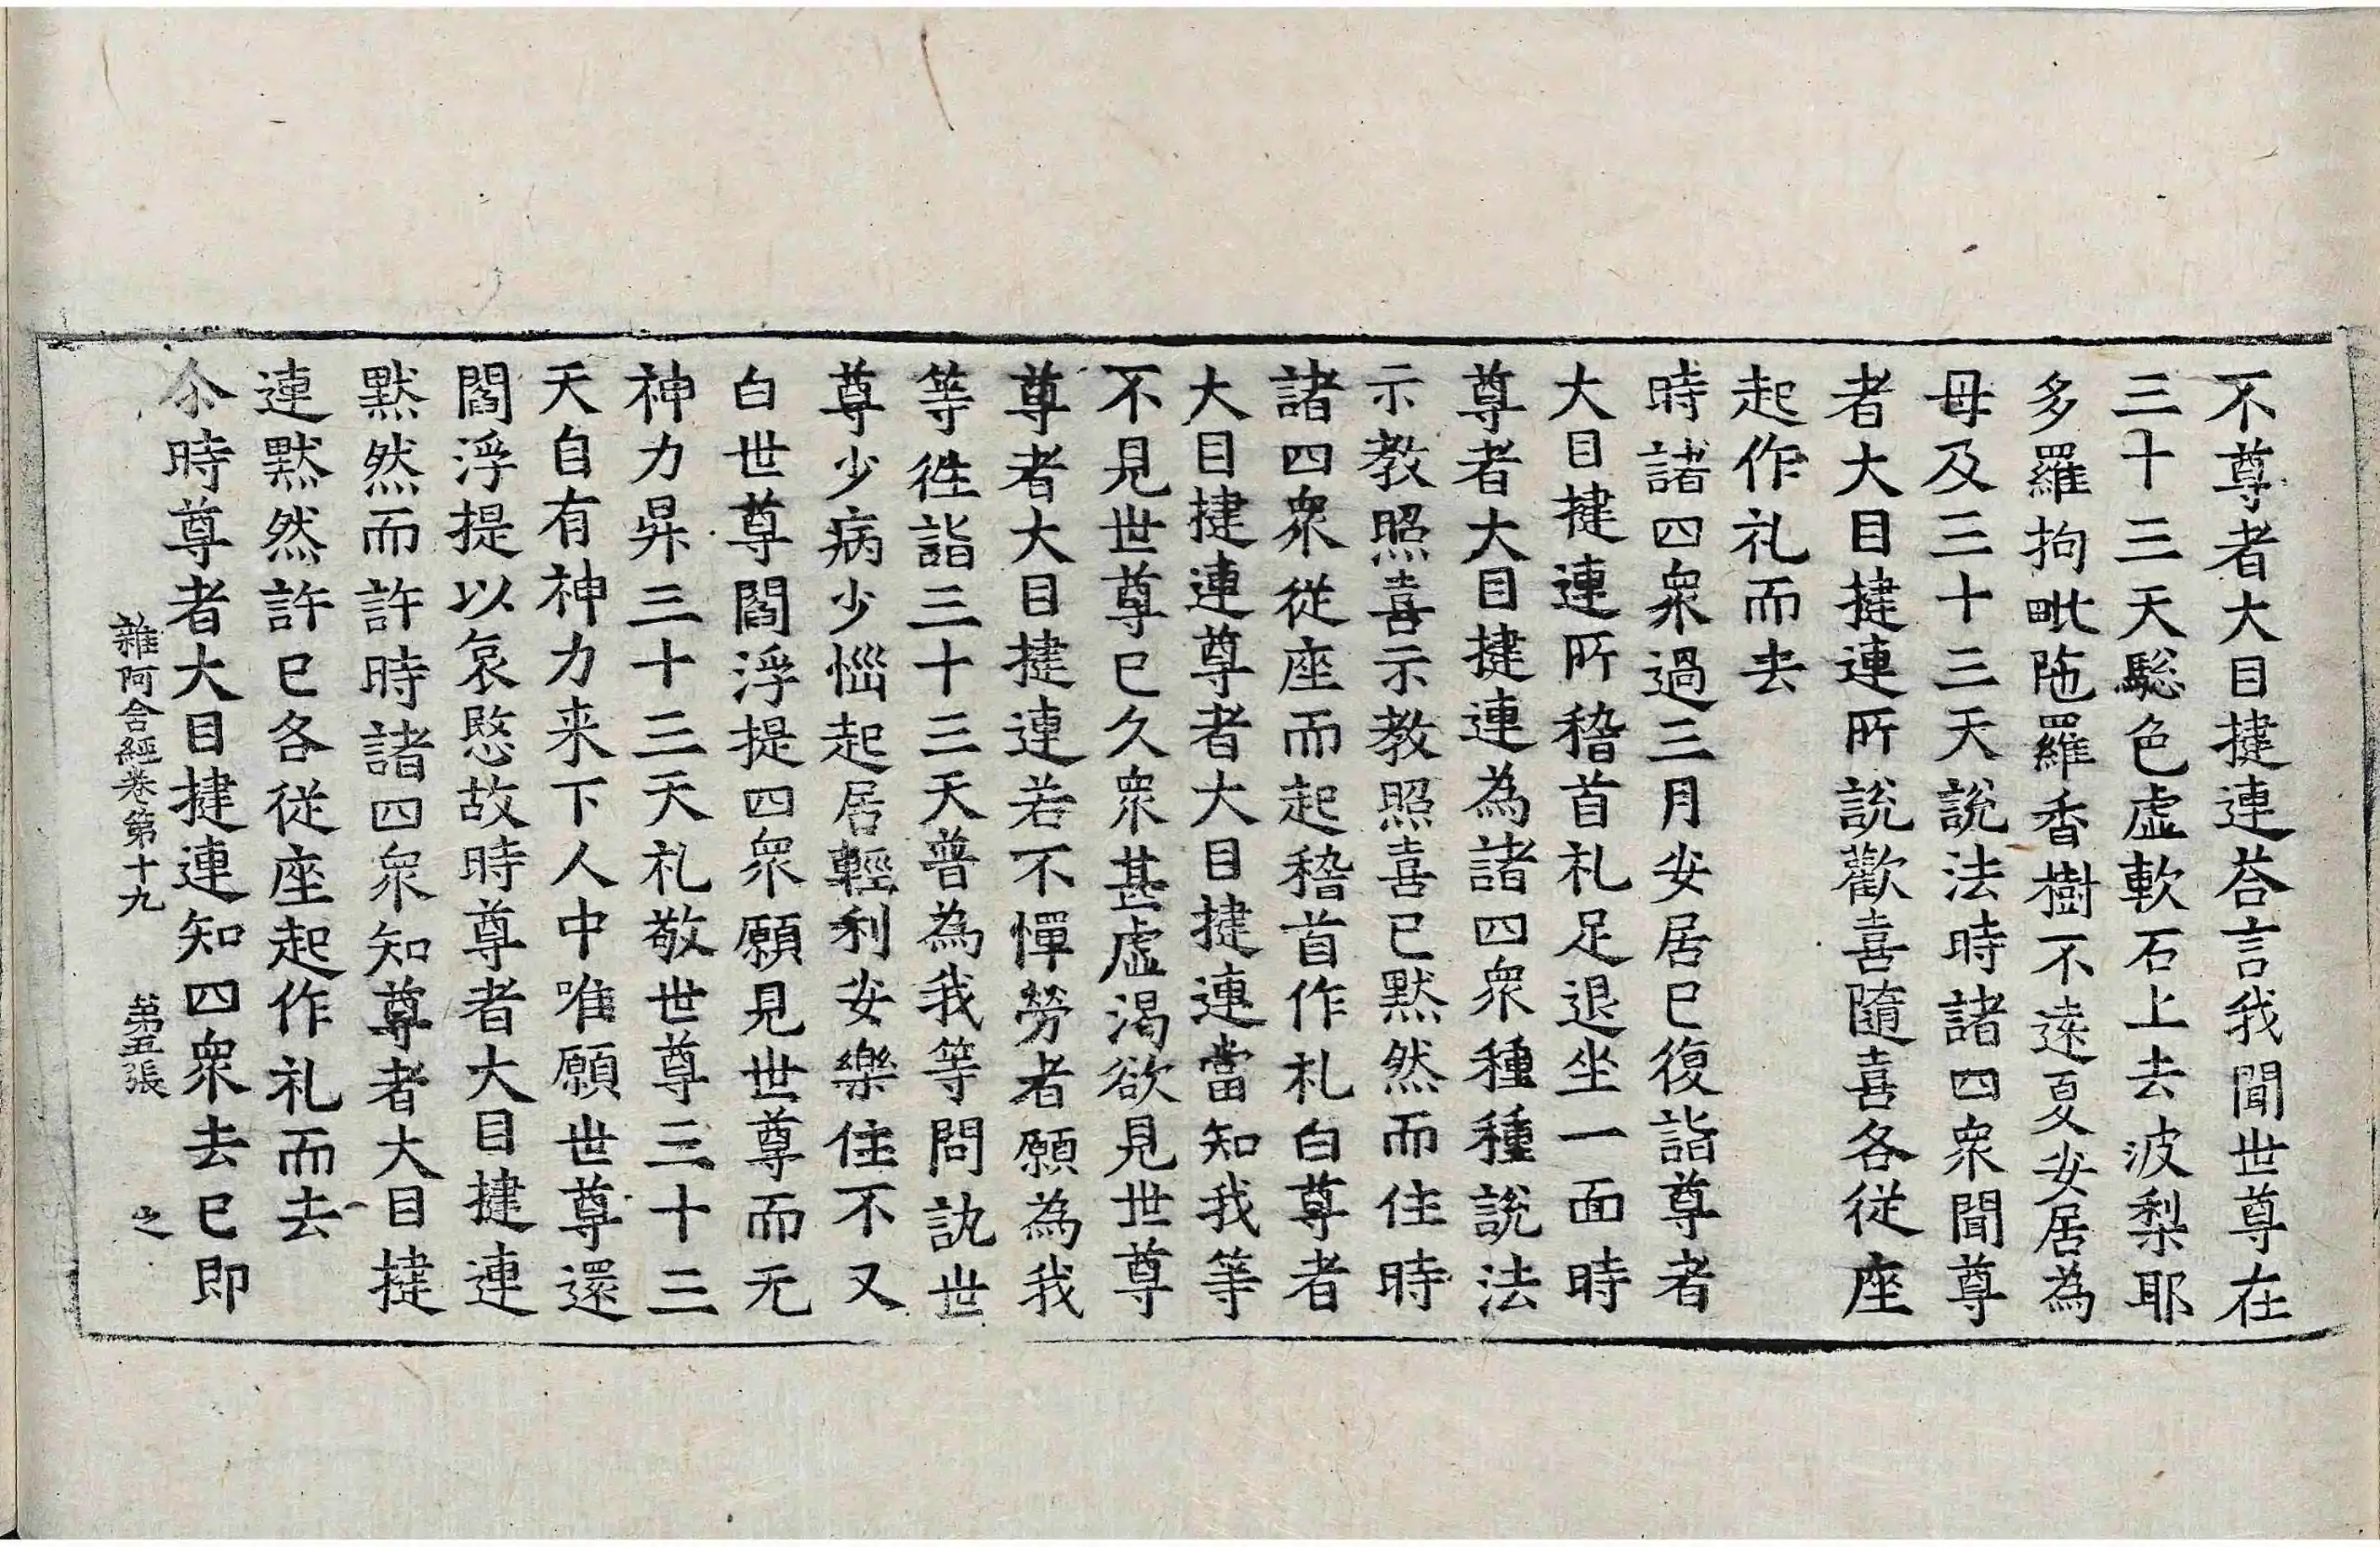 不尊者大目揵連荅言我聞世尊在
三十三天驄色虛軟石上去波梨耶
多羅拘毗陁羅香樹不遠夏安居為
母及三十三天說法時諸四衆聞尊
者大目揵連所說歡喜隨喜各從座
起作礼而去
時諸四衆過三月安居已復詣尊者
大目揵連所稽首礼足退坐一面時
尊者大目揵連為諸四衆種種說法
示教照喜示教照喜已默然而住時
諸四衆從座而起稽首作礼白尊者
大目揵連尊者大目揵連當知我等
不見世尊已久衆甚虛渴欲見世尊
尊者大目揵連若不憚勞者願為我
等往詣三十三天普為我等問訊世
尊少病少惱起居輕利安樂住不又
白世尊閻浮提四衆願見世尊而无
神力昇三十三天礼敬世尊三十三
天自有神力来下人中唯願世尊還
閻浮提以哀愍故時尊者大目揵連
默然而許時諸四衆知尊者大目揵
連默然許已各從座起作礼而去
尒時尊者大目揵連知四衆去已即
雜阿含經卷第十九 第五張 之